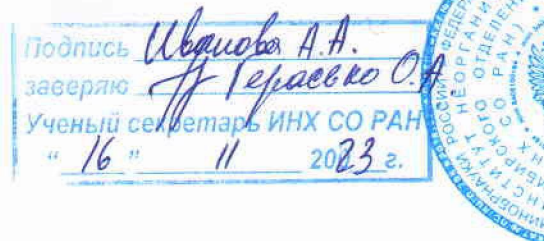 Подпись Иванова А.А.
заверяю Герасько О.А.
Ученый секретарь ИНХ СО РАН
" 16 " 11 2023 г.